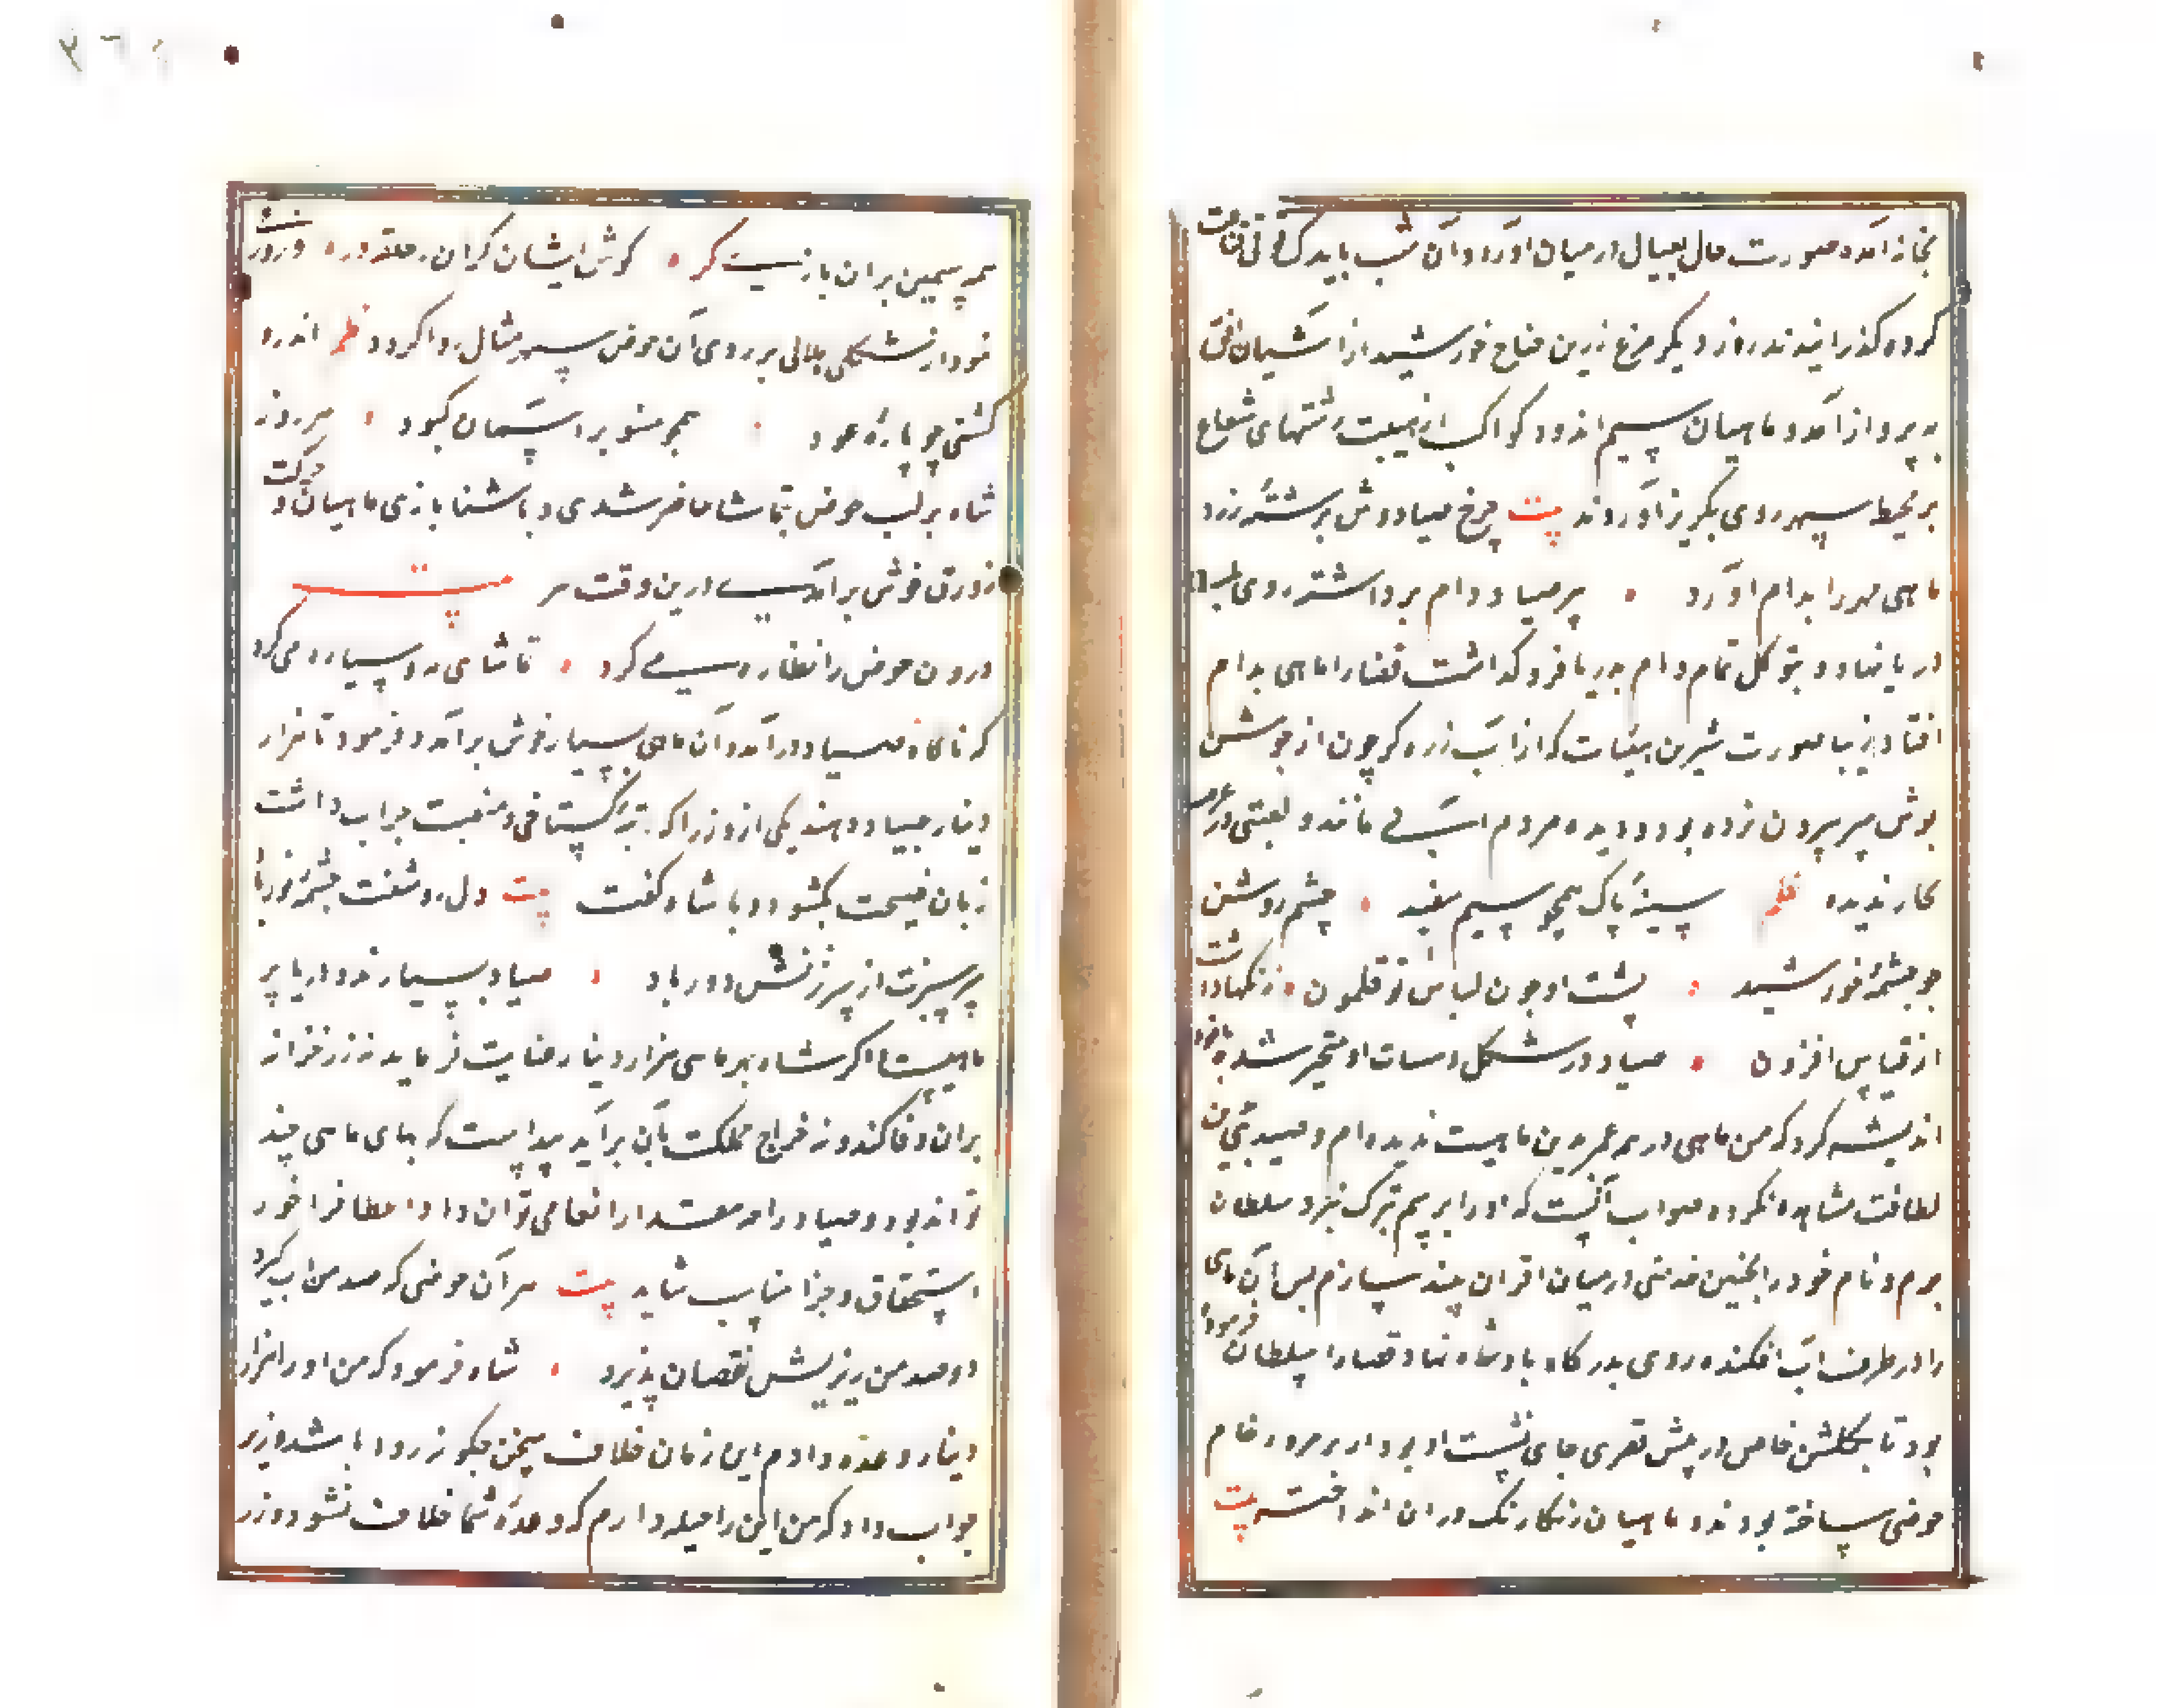 بخانه آمده صورت حال بعیال در میان آورد و آن شب باید ک قوتی قناعت
کرده گذرانیدند روز دیگر مرغ زرین جناح خورشید از آشیان افق
به پرواز آمد و ماهیان سیم اندود کواکب از هیبت رشتهای شعاع
بر محیط سپهر روی بگریز آوردند بیت چرخ صیادوش برشته زرد
ماهی مهر را بدام آورد پیر صیاد دام برداشته روی بلب
دریا نهاد و بتوکل تمام دام بدریا فرو گذاشت قضا را ماهی بدام
افتاد زیبا صورت شیرین هیئات که از آب زره گر چون از جوشن
پوش سر بیرون نزده بود و دیده مردم آبی مانند و لعبتی در عرصه
بحار ندیده نظم سینهٔ پاک همچو سیم سفید چشم روشن
چو چشمهٔ خورشید پشت او چون لباس بوقلمون رنگها داشت
از قیاس افزون صیاد در شکل و صفات او متحیر شده با خود
اندیشه کرد که من ماهی در همه عمر بدین ماهیت ندیده‌ام و صیدی بدین
لطافت مشاهده نکرده صواب آنست که او را برسم تبرک نزد سلطان
برم و نام خود را بچنین خدمتی در میان اقران بلند سازم پس آن ماهی
را در ظرف آب افکنده روی بدرگاه بادشاه نهاد قضا را سلطان فرموده
بود تا بگلشن خاص در پیش قصری جای نشست او بود از مرمر رخام
حوضی ساخته بودند و ماهیان رنگارنگ در ان انداخته بیت
همه سیمین بران بازنیت گر گوش ایشان گران ز حلقه زر و زورق
نمودار شکل هلالی بر روی آن حوض سپهر مثال روا کرده نظم اندرو
کشتی چو پاره عود همچو مه نو بر آسمان کبود هر روز
شاه بر لب حوض بتماشا حاضر شدی و با شنا بازی ماهیان و حرکت
زورق خوش برآمدی درین وقت بر بیت
درون حوض را نظاره می کرد تماشای مه و سیاره می کرد
که ناگاه صیاد درآمد و آن ماهی بسیار خوش برآمد و فرمود تا هزار
دینار بصیاد دهند یکی از وزرا که رتبه گستاخی و منصب جواب داشت
زبان نصیحت بگشود و با شاه گفت بیت دل روشنت چشمهٔ نور باد
سر سبزت از سرزنش دور باد صیاد بسیار خود دریا پر
ماهیست اگر شاه بهر ماهی هزار دینار عنایت فرماید نه زر خزانه
بران وفا کند و نه خراج مملکت بآن برآید پیداست که بهای ماهی چند
تواند بود و صیاد را چه مقدار انعام می توان داد عطا فراخور
استحقاق و جزا مناسب شاید بیت هر آن حوضی که صد من آب گیرد
دو صد من ریزیش نقصان پذیرد شاه فرمود که من او را هزار
دینار وعده دادم این زمان خلاف سخن چگونه روا باشد وزیر
جواب داد که من این را حیله دارم که وعدهٔ شما خلاف نشود و زر